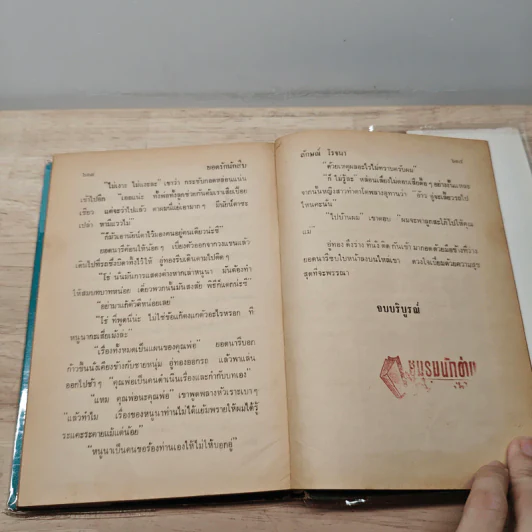 ยอดรักนักถีบ
"ไม่เอาะ ไม่แยะละ" เขาว่า กระชับกอดหล่อนแน่น
"ก็มันอาบดินนั่งไว้มองคนอยู่คนเดียวน่ะซี"
ยอดนารีค้อนให้น้อย ๆ เบี่ยงตัวออกจากวงแขนแล้ว
เดินไปที่รถซึ่งบิดาตั้งไว้ให้ อู่ทองรีบเดินตามไปติด ๆ
"โธ่ นั่นมันการแสดงต่างหากเล่าหนูนา มันต้องทำ
ให้สมบทบาทหน่อย เดี๋ยวพวกนั้นมันสงสัย พิธีก็แตกน่ะซี"
"อย่ามาแก้ตัวดีหน่อยเลย"
"โธ่ ที่พูดนี่น่ะ ไม่ใช่ข้อแก้ตงแก้ตัวอะไรหรอก ที่
หนูนากะเสี่ยเม้งล่ะ"
"เรื่องทั้งหมดเป็นแผนของคุณพ่อ" ยอดนารีบอก
ก้าวขึ้นนั่งเคียงข้างกับชายหนุ่ม อู่ทองออกรถ แล้วพาแล่น
ออกไปช้า ๆ "คุณพ่อเป็นคนดำเนินเรื่องและกำกับบทเอง"
"แหม คุณพ่อนะคุณพ่อ" เขาพูดพลางหัวเราะเบา ๆ
"แล้วทำไม เรื่องของหนูนาท่านไม่ได้แย้มพรายให้ผมได้รู้
ระแคะระคายแม้แต่น้อย"
"หนูนาเป็นคนขอร้องท่านเองให้ไม่ให้บอกอู่"
ภักษณ์ โรจนา
"ด้วยเหตุผลอะไรไม่ทราบครับผม"
"ก็ ไม่รู้ละ" หล่อนเลี่ยงไม่ตอบเสียดื้อ ๆ
จากนั้นหญิงสาวทำตาโตพลางอุทานว่า "อ้าว อู่จะเลี้ยวรถไป
ไหนคะนั่น"
"ไปบ้านผม" เขาตอบ "ผมจะพาลูกสะใภ้ไปไหว้คุณ
แม่"
ยอดนารีซบใบหน้าลงบนไหล่เขา ดวงใจเปี่ยมด้วยความสุข
สุดที่จะพรรณา
จบบริบูรณ์